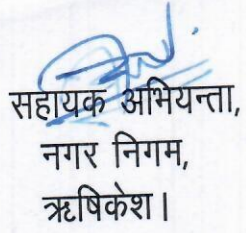 सहायक अभियन्ता,
नगर निगम,
ऋषिकेश।